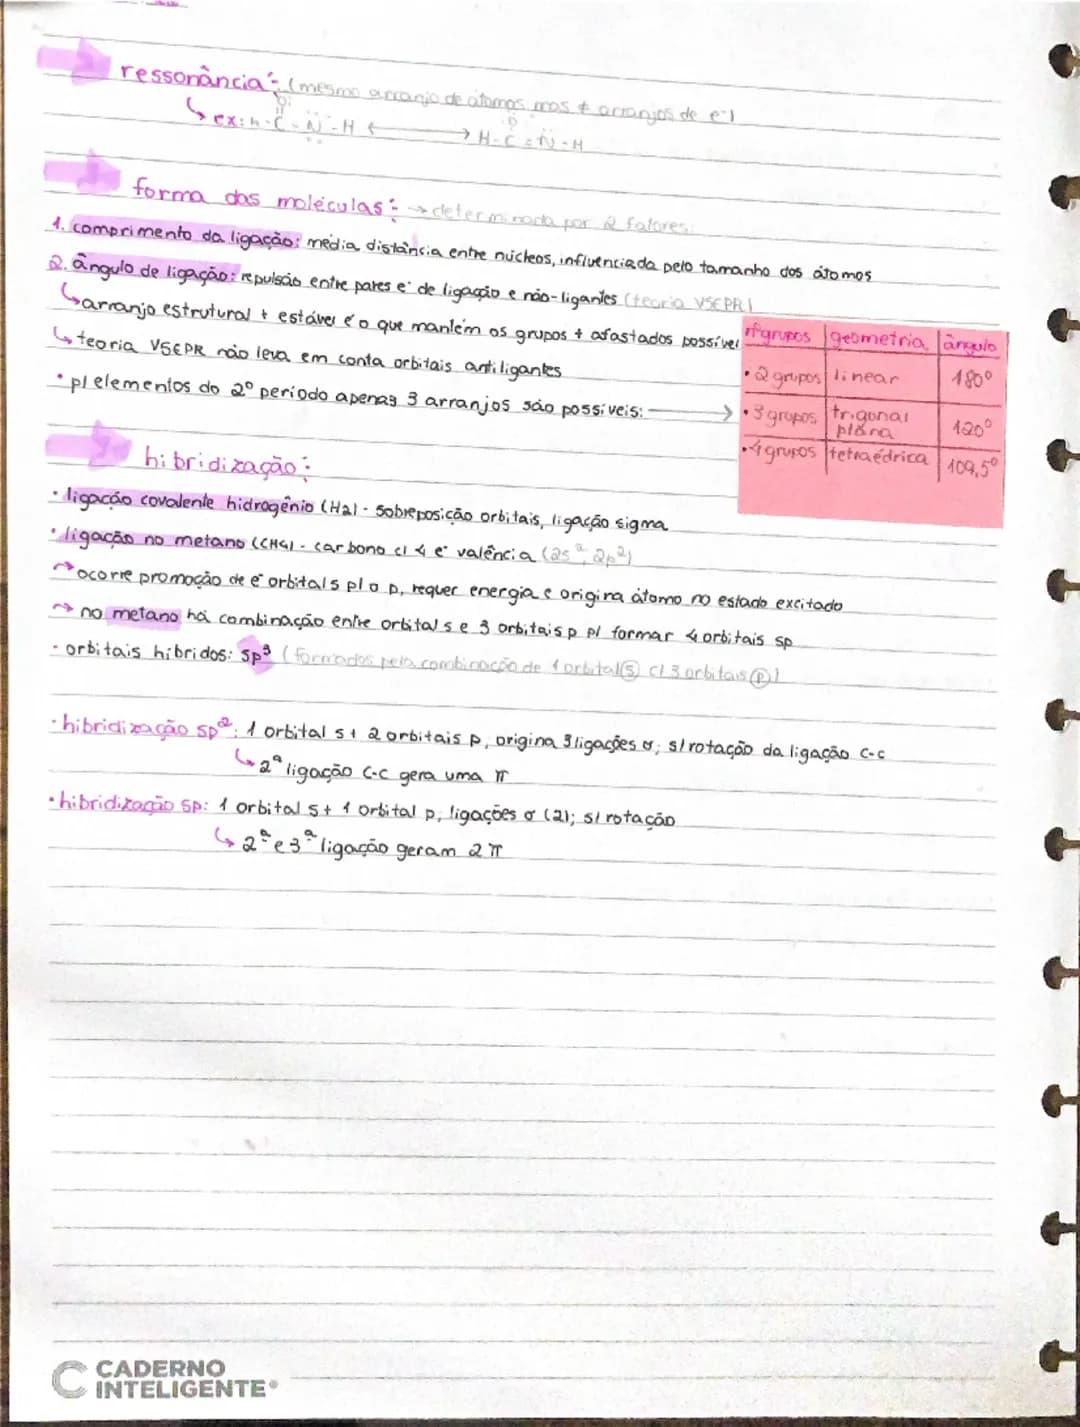 ressonância: (mesmo arranjo de átomos mas ≠ arranjos de e-)
↳ ex: H-C-N̈-H ⟷ H-C=N̈-H
forma das moléculas: → determinada por 2 fatores:
1. comprimento da ligação: média distância entre núcleos, influenciada pelo tamanho dos átomos
2. ângulo de ligação: repulsão entre pares e⁻ de ligação e não-ligantes (teoria VSEPR)
↳ arranjo estrutural + estável é o que mantém os grupos + afastados possível
↳ teoria VSEPR não leva em conta orbitais antiligantes
• p/ elementos do 2º período apenas 3 arranjos são possíveis: →
nº grupos | geometria | ângulo
• 2 grupos | linear | 180º
• 3 grupos | trigonal plana | 120º
• 4 grupos | tetraédrica | 109,5º
hibridização:
• ligação covalente hidrogênio (H2) - sobreposição orbitais, ligação sigma
• ligação no metano (CH4) - carbono c/ 4 e⁻ valência (2s², 2p²)
→ ocorre promoção de e⁻ orbital s p/ o p, requer energia e origina átomo no estado excitado
→ no metano há combinação entre orbital s e 3 orbitais p p/ formar 4 orbitais sp
• orbitais híbridos: sp³ (formados pela combinação de 1 orbital (s) c/ 3 orbitais (p))
• hibridização sp²: 1 orbital s + 2 orbitais p, origina 3 ligações σ; s/ rotação da ligação C-C
↳ 2ª ligação C-C gera uma π
• hibridização sp: 1 orbital s + 1 orbital p; ligações σ (2); s/ rotação
↳ 2ª e 3ª ligação geram 2 π
CADERNO
INTELIGENTE®